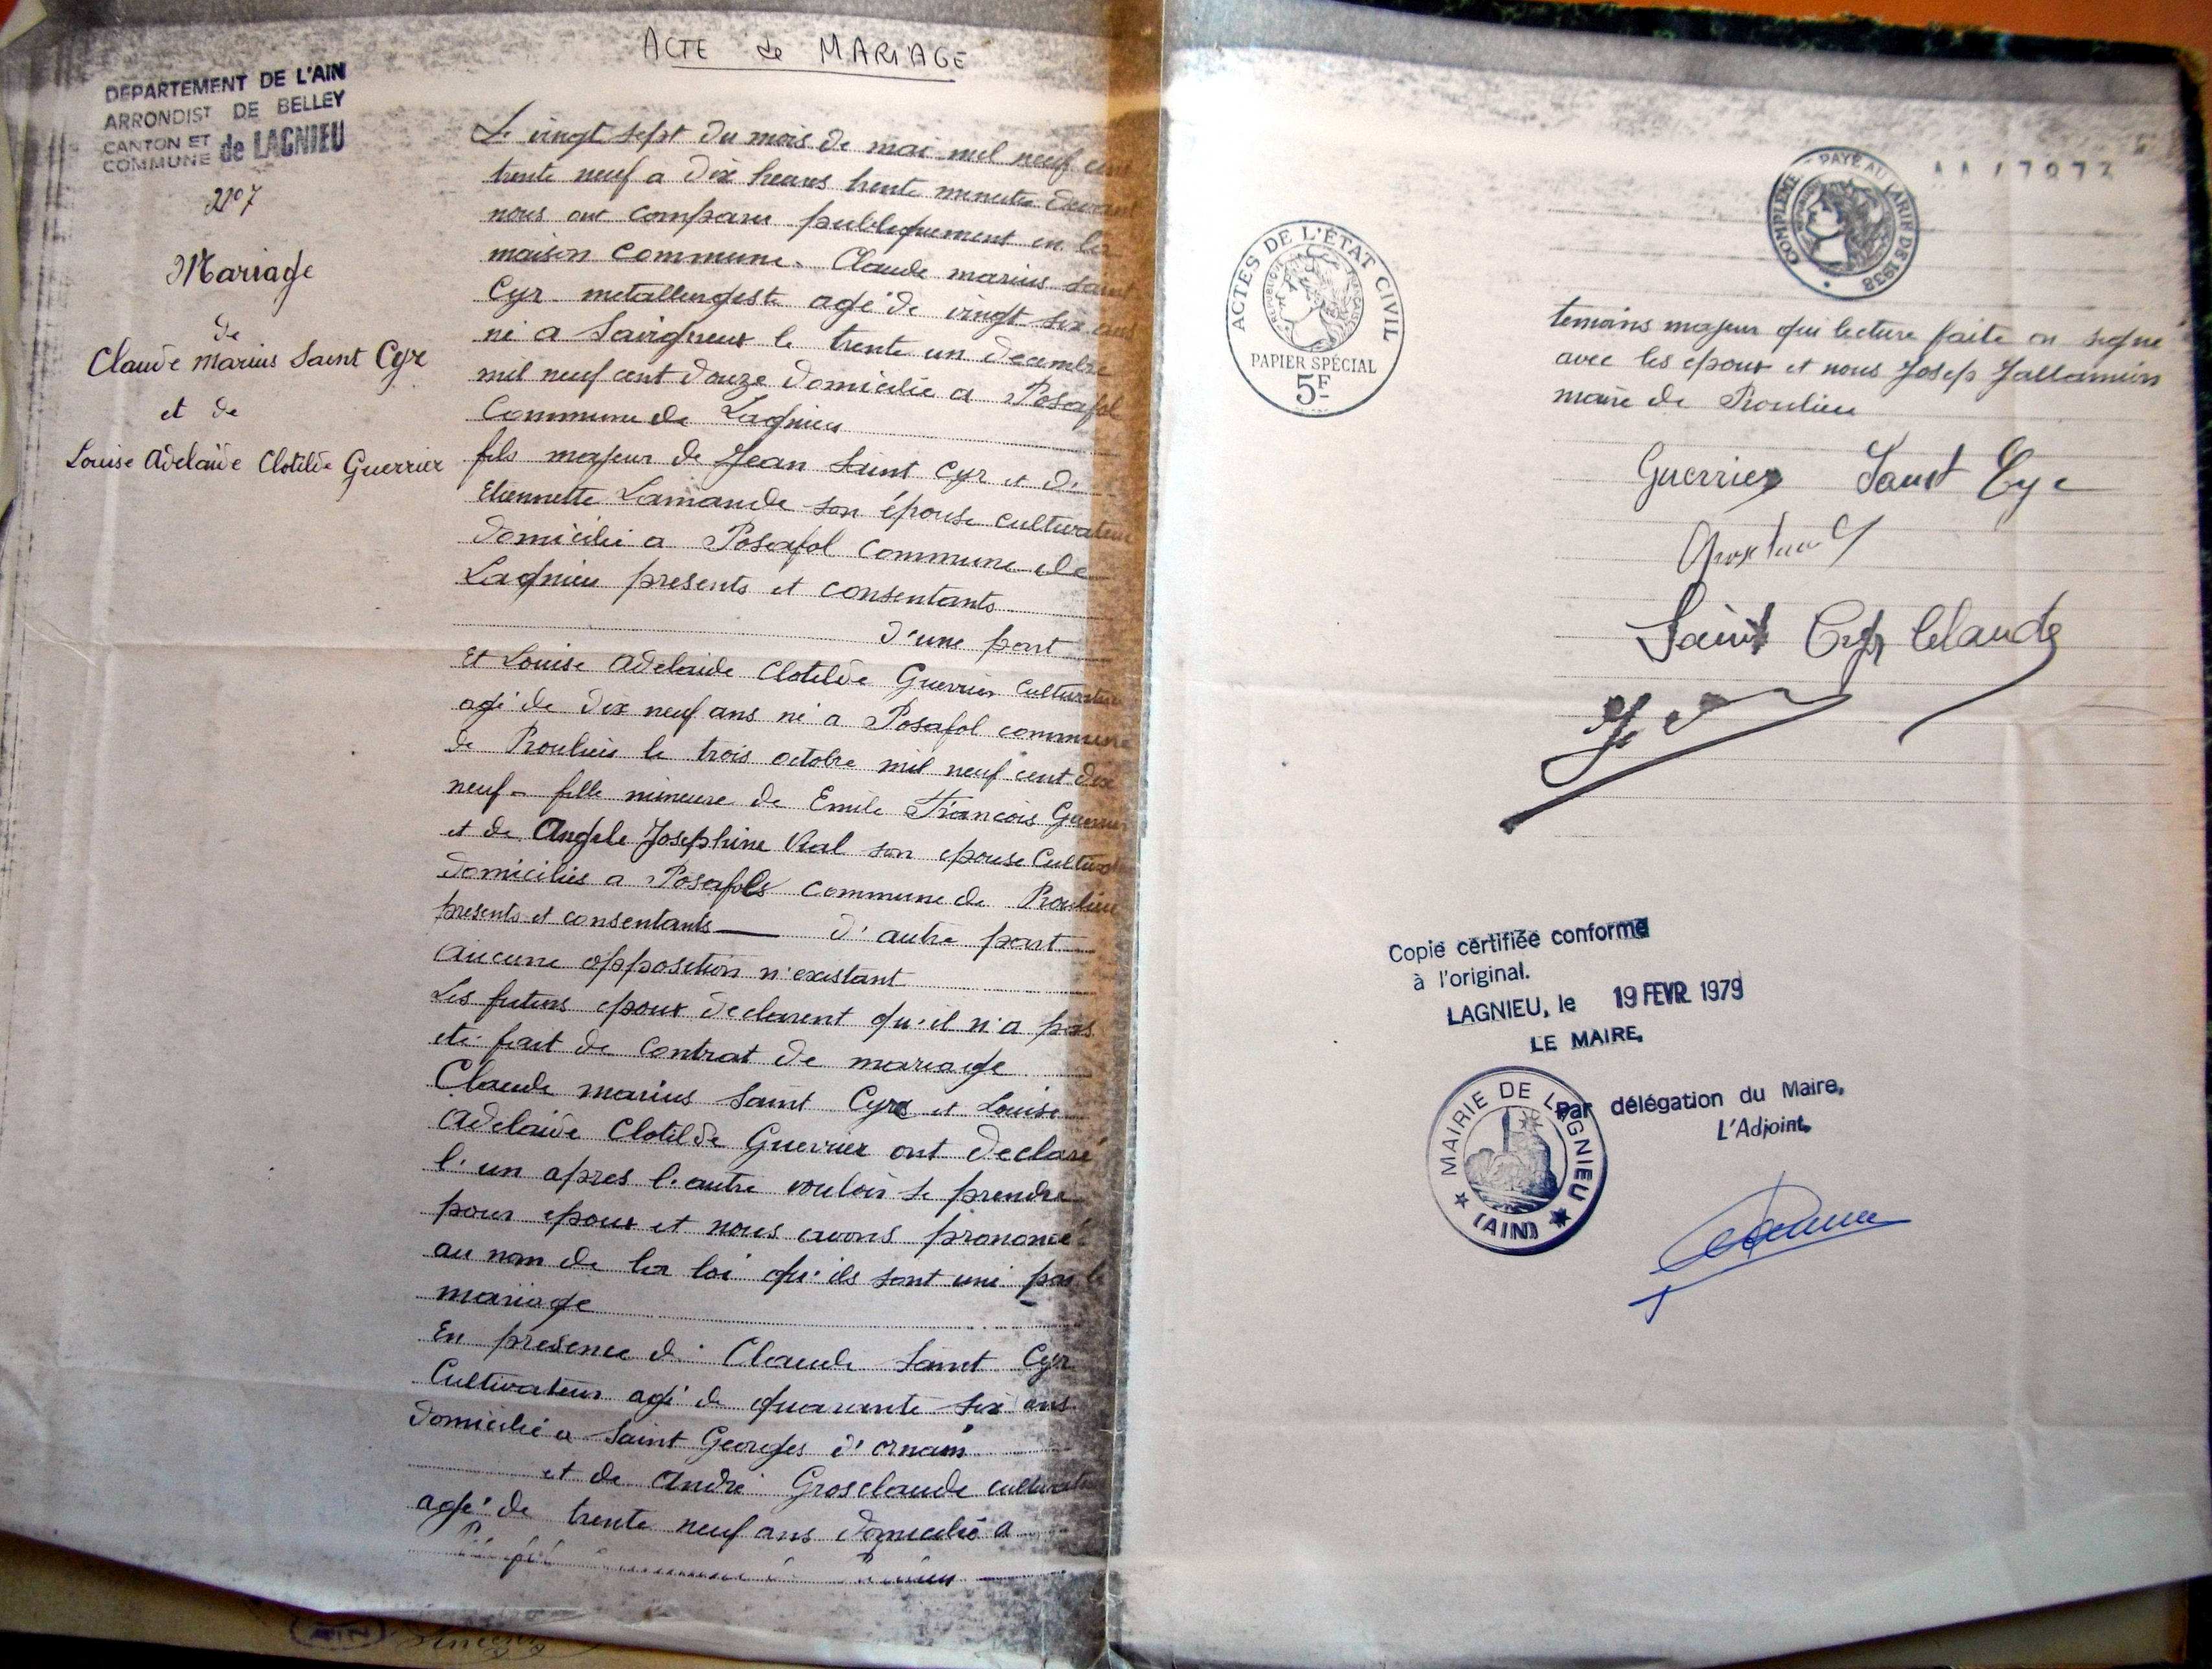 ACTE de MARIAGE
DEPARTEMENT DE L'AIN
ARRONDIST DE BELLEY
CANTON ET
COMMUNE de LAGNIEU
Nº 7
Mariage
de
Claude Marius Saint Cyr
et de
Louise Adelaïde Clotilde Guerrier
Le vingt sept du mois de mai mil neuf cent
trente neuf a dix heures trente minutes devant
nous ont comparu publiquement en la
maison commune. Claude marius Saint
Cyr metallurgiste agé de vingt six ans
né a Savigneux le trente un decembre
mil neuf cent douze domicilié a Posafol
Commune de Lagnieu
fils majeur de Jean Saint Cyr et de
Etiennette Lamande son épouse cultivateur
domicilié a Posafol Commune de
Lagnieu presents et consentants
d'une part
Et Louise Adelaide Clotilde Guerrier Cultivatrice
agé de dix neuf ans né a Posafol commune
de Proulieu le trois octobre mil neuf cent dix
neuf - fille mineure de Emile François Guerrier
et de Angele Josephine Vial son epouse Cultiva
domiciliés a Posafols commune de Proulieu
presents et consentants d'autre part
Aucune opposition n'existant
Les futurs epoux declarent qu'il n'a pas
eté fait de contrat de mariage
Claude marius Saint Cyr et Louise
Adelaide Clotilde Guerrier ont declaré
l'un apres l'autre vouloir se prendre
pour epoux et nous avons prononcé
au nom de la loi qu'ils sont uni par le
mariage
En presence de Claude Saint Cyr
Cultivateur agé de quarante six ans
domicilié a Saint Georges d'ornain
et de André Grosclaude cultivate
agé de trente neuf ans domicilié a
COMPLÉMENT PAYÉ AU TARIF DE 1938
ACTES DE L'ÉTAT CIVIL
REPUBLIQUE FRANÇAISE
PAPIER SPÉCIAL
5F
temoins majeur qui lecture faite on signé
avec les epoux et nous Josep Jallamion
maire de Proulieu
Guerrier Saint Cyr
Saint Cyr Claude
Copie certifiée conforme
à l'original.
LAGNIEU, le 19 FEVR. 1979
LE MAIRE,
MAIRIE DE LAGNIEU
(AIN)
Par délégation du Maire,
L'Adjoint,